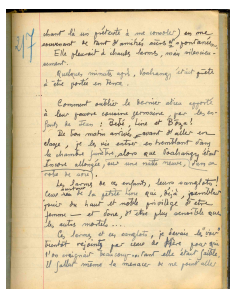 217
chant là un prétexte à me consoler, en me
souvenant de tant d'amitiés aussi spontanées.
Elle pleurait à chaudes larmes, mais silencieu-
sement.
Quelques minutes après, Soulange était prête
à être portée en terre.
Comment oublier le dernier adieu apporté
à leur pauvre cousine germaine, par les en-
fants de Jean : Bébé, Line et
De bon matin avant d'aller en
classe, je les vis entrer en tremblant dans
la chambre, alors que Soulange était
encore allongée, sur une natte neuve, dans sa
robe de soie.
Les larmes de ces enfants, leurs sanglots !
surtout
Ceux de la petite Line qui, déjà, semblait
jouir du haut et noble privilège d'être
femme — et donc, d'être plus sensible que
les autres mortels...
Ces larmes et ces sanglots, je devais les voir
bientôt rejoints par ceux de pour qui
l'on craignait beaucoup car elle était faible.
Il fallut même la menacer de ne point aller